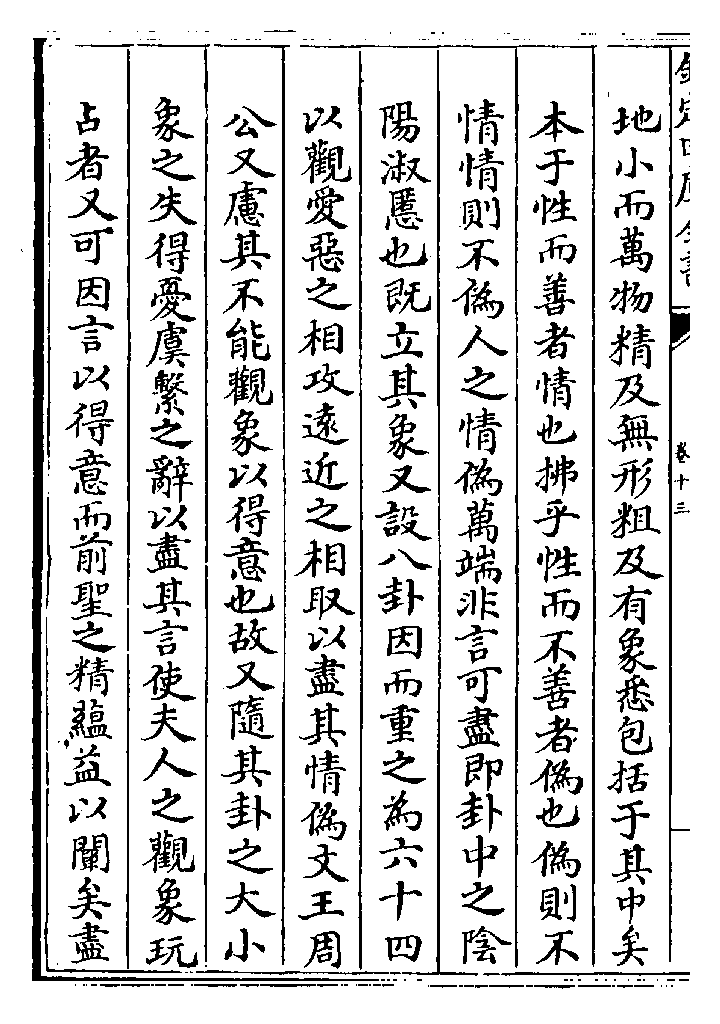 欽定四庫全書
卷十三
地小而萬物精及無形粗及有象悉包括于其中矣
本于性而善者情也拂乎性而不善者偽也偽則不
情情則不偽人之情偽萬端非言可盡即卦中之陰
陽淑慝也既立其象又設八卦因而重之為六十四
以觀愛惡之相攻遠近之相取以盡其情偽文王周
公又慮其不能觀象以得意也故又隨其卦之大小
象之失得憂虞繫之辭以盡其言使夫人之觀象玩
占者又可因言以得意而前聖之精蘊益以闡矣盡